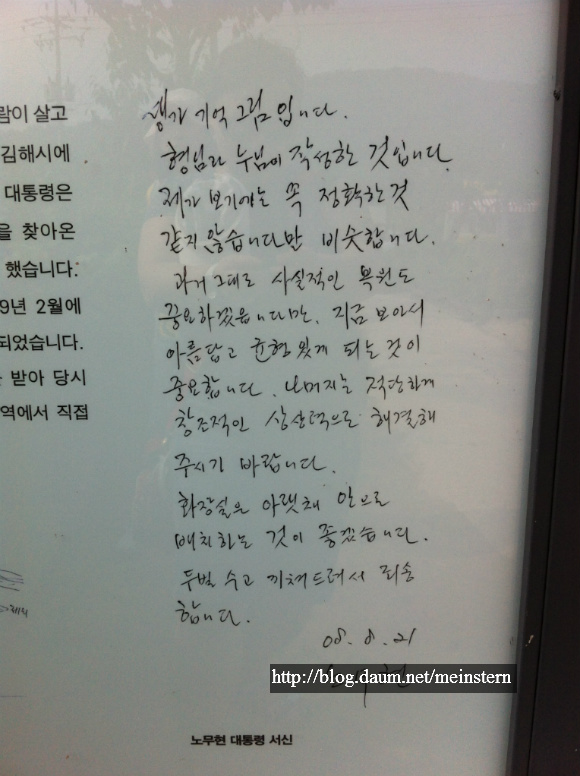 람이 살고
김해시에
대통령은
을 찾아온
했습니다.
9년 2월에
되었습니다.
받아 당시
역에서 직접
생가 기억 그림 입니다.
형님과 누님이 작성한 것입니다.
제가 보기에는 꼭 정확한 것
같지 않습니다만 비슷합니다.
과거 그대로 사실적인 복원도
중요하겠습니다만, 지금 보아서
아름답고 균형있게 되는 것이
중요합니다. 나머지는 적당하게
창조적인 상상력으로 해결해
주시기 바랍니다.
화장실은 아랫채 안으로
배치하는 것이 좋겠습니다.
두벌 수고 끼쳐드려서 죄송
합니다.
08. 8. 21
http://blog.daum.net/meinstern
노무현 대통령 서신